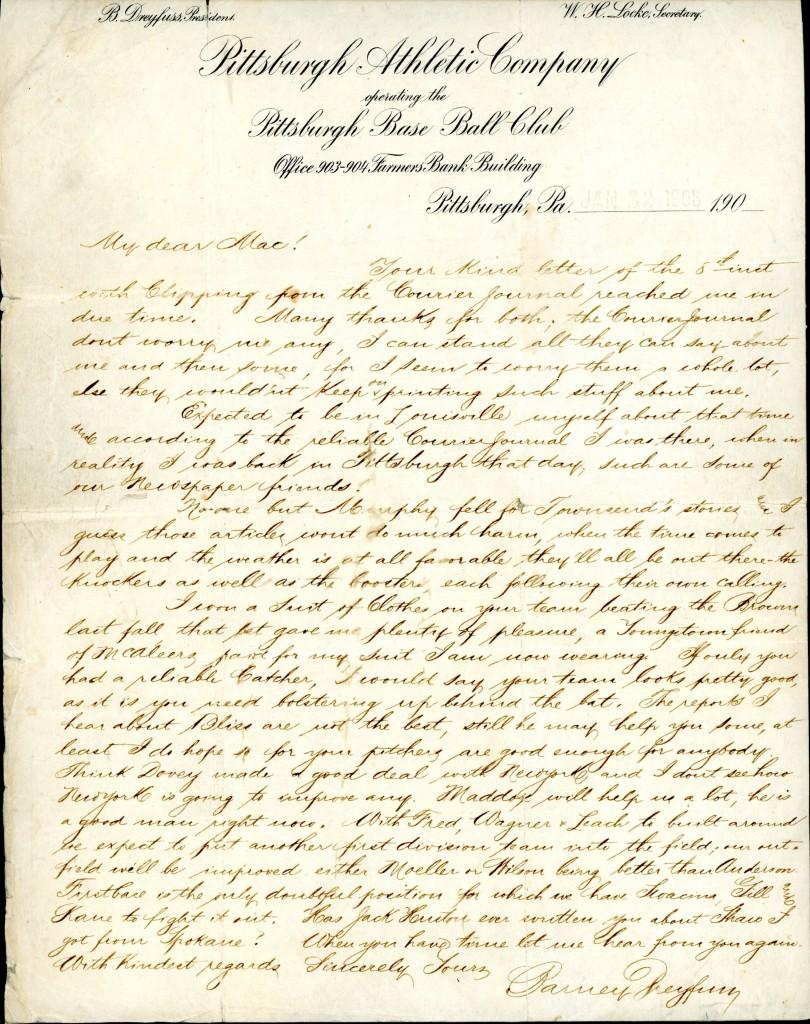 B. Dreyfuss, President.
W. H. Locke, Secretary.
Pittsburgh Athletic Company
operating the
Pittsburgh Base Ball Club
Office 903-904 Farmers Bank Building
Pittsburgh, Pa. JAN 1908 190
My dear Mac!
Your kind letter of the 8th inst
with Clipping from the Courier Journal reached me in
due time. Many thanks for both; the Courier Journal
dont worry me any, I can stand all they can say about
me and then some, for I seem to worry them a whole lot,
else they would'nt keep on printing such stuff about me.
Expected to be in Louisville myself about that time
and according to the reliable Courier Journal I was there, when in
reality I was back in Pittsburgh that day, such are some of
our Newspaper friends.
No-one but Murphy fell for Townsend's stories and I
guess those articles wont do much harm, when the time comes to
play and the weather is at all favorable they'll all be out there - the
Knockers as well as the boosters, each following their own calling.
I won a Suit of Clothes on your team beating the Browns
last fall that bet gave me plenty of pleasure, a Youngstown friend
of McAleers, paid for my suit I am now wearing. If only you
had a reliable Catcher, I would say your team looks pretty good,
as it is you need bolstering up behind the bat. The reports I
hear about Bliss are not the best, still he may help you some, at
least I do hope so for your pitchers are good enough for anybody.
Think Dovey made a good deal with New York and I dont see how
New York is going to improve any. Maddox will help us a lot, he is
a good man right now. With Fred, Wagner & Leach to built around
we expect to put another first division team into the field; our out-
field will be improved either Moeller or Wilson being better than Anderson
First base is the only doubtful position for which we have Swacina, Gill and
Kane to fight it out. Has Jack Huston ever written you about Shaw I
got from Spokane? When you have time let me hear from you again.
With kindest regards Sincerely Yours
Barney Dreyfuss